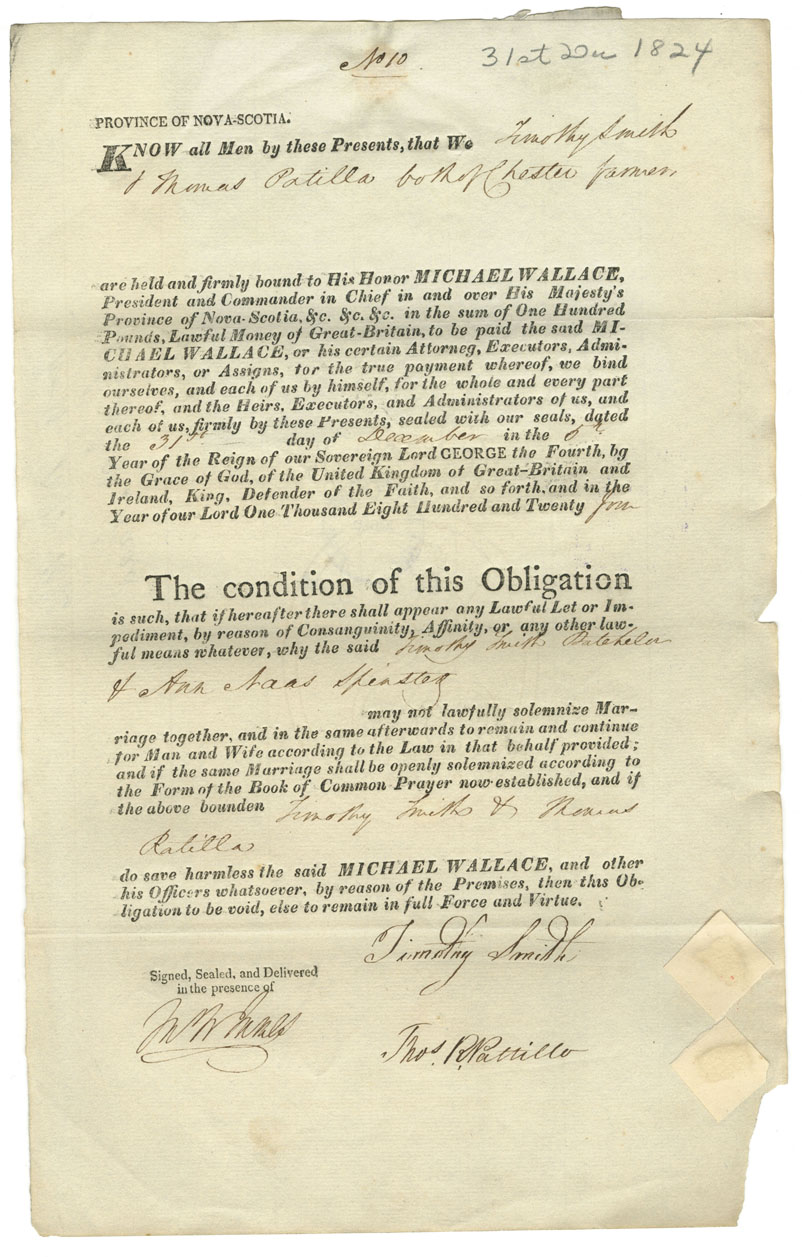 No 10.
31st Dec 1824
PROVINCE OF NOVA-SCOTIA.
KNOW all Men by these Presents, that We Timothy Smith
& Thomas Patilla both of Chester farmers
are held and firmly bound to His Honor MICHAEL WALLACE,
President and Commander in Chief in and over His Majesty's
Province of Nova-Scotia, &c. &c. &c. in the sum of One Hundred
Pounds, Lawful Money of Great-Britain, to be paid the said MI-
CHAEL WALLACE, or his certain Attorneg, Executors, Admi-
nistrators, or Assigns, for the true payment whereof, we bind
ourselves, and each of us by himself, for the whole and every part
thereof, and the Heirs, Executors, and Administrators of us, and
each of us, firmly by these Presents, sealed with our seals, dated
the 31st day of December in the 5th
Year of the Reign of our Sovereign Lord GEORGE the Fourth, bg
the Grace of God, of the United Kingdom of Great-Britain and
Ireland, King, Defender of the Faith, and so forth, and in the
Year of our Lord One Thousand Eight Hundred and Twenty four
The condition of this Obligation
is such, that if hereafter there shall appear any Lawful Let or Im-
pediment, by reason of Consanguinity, Affinity, or any other law-
ful means whatever, why the said Timothy Smith Batchelor
& Ann Naas Spinster
may not lawfully solemnize Mar-
riage together, and in the same afterwards to remain and continue
for Man and Wife according to the Law in that behalf provided;
and if the same Marriage shall be openly solemnized according to
the Form of the Book of Common Prayer now established, and if
the above bounden Timothy Smith & Thomas
Patilla
do save harmless the said MICHAEL WALLACE, and other
his Officers whatsoever, by reason of the Premises, then this Ob-
ligation to be void, else to remain in full Force and Virtue.
Timothy Smith
Signed, Sealed, and Delivered
in the presence of
Thos. R. Pattillo